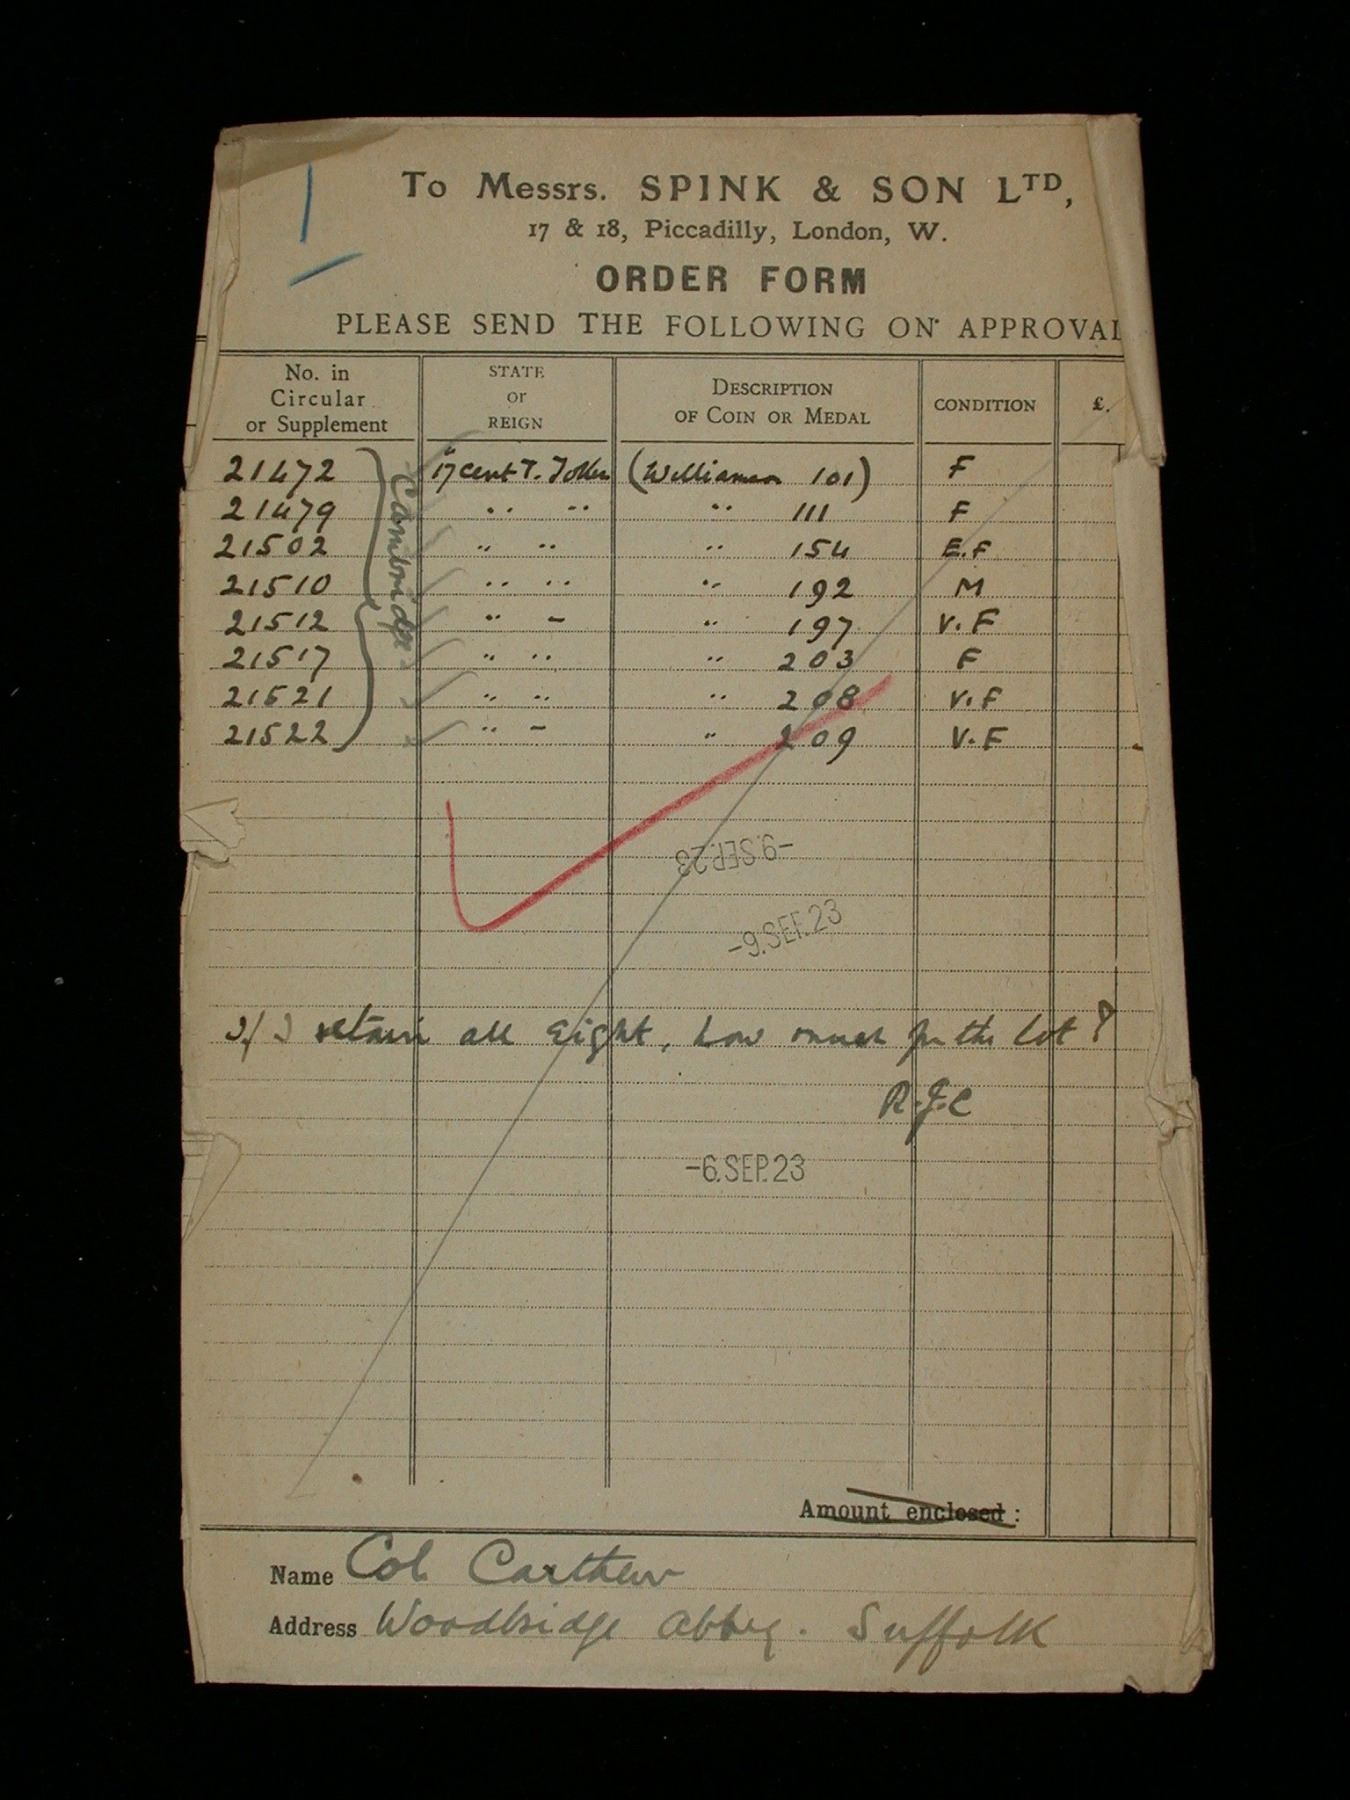 To Messrs. SPINK & SON LTD,
17 & 18, Piccadilly, London, W.
ORDER FORM
PLEASE SEND THE FOLLOWING ON APPROVAL
No. in Circular or Supplement STATE or REIGN DESCRIPTION OF COIN OR MEDAL CONDITION £.
21472 17 cent T. Token (Williamson 101) F
21479 " " " 111 F
21502 " " " 154 E.F
21510 " " " 192 M
21512 " – " 197 V.F
21517 " " " 203 F
21521 " " " 208 V.F
21522 " – " 209 V.F
Cambridge
-9.SEP.23
-9.SEP.23
If I retain all eight, how much for the lot?
R.J.C
-6.SEP.23
Amount enclosed:
Name Col Carthew
Address Woodbridge Abbey. Suffolk